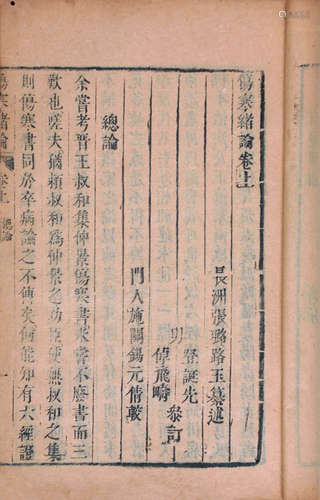 傷寒緒論卷上
長洲張璐路玉纂述
男
登誕先
倬飛疇
參訂
門人施元倩較
總論
余嘗考晉王叔和集仲景傷寒書未常不廢書而三
歎也嗟夫猶賴叔和為仲景之功臣使無叔和之集
則傷寒書同於卒病論之不傳矣何能知有六經證
傷寒緒論 卷上 總論
一